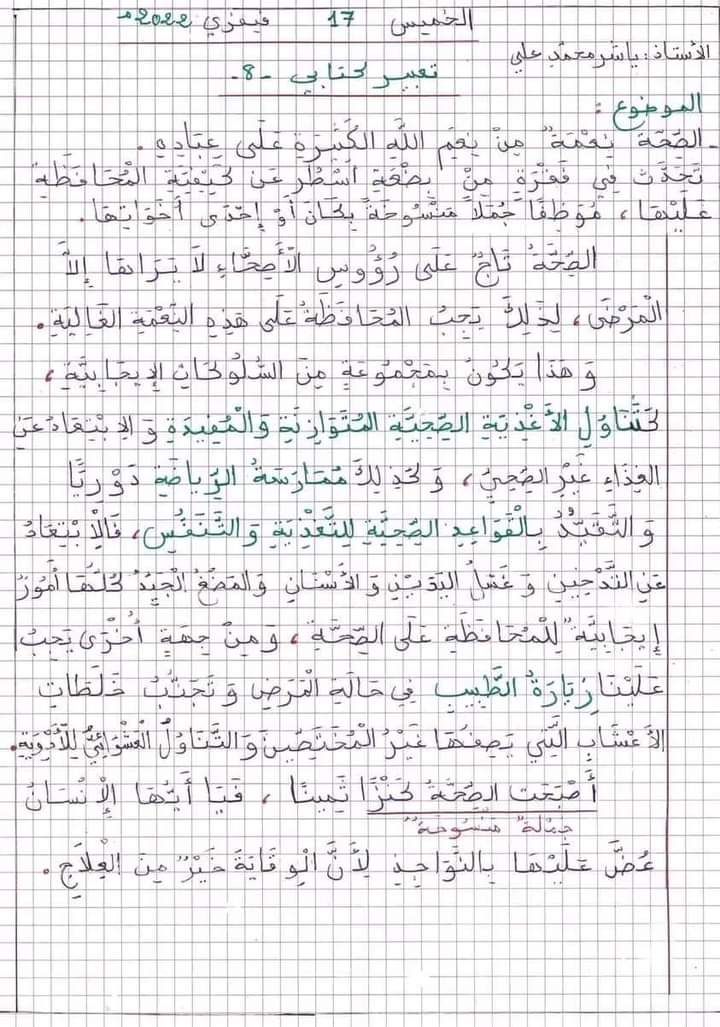 الخميس 17 فيفري 2022م
الأستاذ: ياسر محمد علي
تعبير كتابي -8-
الموضوع:
- الصِّحَّةُ نِعْمَةٌ مِنْ نِعَمِ اللَّهِ الكَثِيرَةِ عَلَى عِبَادِهِ.
تَحَدَّثْ فِي فَقْرَةٍ مِنْ بِضْعَةِ أَسْطُرٍ عَنْ كَيْفِيَّةِ الْمُحَافَظَةِ
عَلَيْهَا، مُوَظِّفًا جُمَلًا مَنْسُوخَةً بِكَانَ أَوْ إِحْدَى أَخَوَاتِهَا.
الصِّحَّةُ تَاجٌ عَلَى رُؤُوسِ الأَصِحَّاءِ لَا يَرَاهَا إِلَّا
الْمَرْضَى، لِذَلِكَ يَجِبُ المُحَافَظَةُ عَلَى هَذِهِ النِّعْمَةِ الغَالِيَةِ.
وَ هَذَا يَكُونُ بِمَجْمُوعَةٍ مِنَ السُّلُوكَاتِ الإِيجَابِيَّةِ،
كَتَنَاوُلِ الأَغْذِيَةِ الصِّحِيَّةِ المُتَوَازِنَةِ وَالْمُفِيدَةِ وَ الِابْتِعَادُ عَنِ
الغِذَاءِ غَيْرِ الصِّحِيِّ، وَ كَذَلِكَ مُمَارَسَةُ الرِّيَاضَةِ دَوْرِيًّا
وَ التَّقَيُّدُ بِالْقَوَاعِدِ الصِّحِيَّةِ لِلتَّغْذِيَةِ وَ التَّنَفُّسِ، فَالِابْتِعَادُ
عَنِ التَّدْخِينِ وَ غَسْلُ اليَدَيْنِ وَ الأَسْنَانِ وَ المَضْغُ الْجَيِّدُ كُلُّهَا أُمُورٌ
إِيجَابِيَّةٌ لِلْمُحَافَظَةِ عَلَى الصِّحَّةِ، وَ مِنْ جِهَةٍ أُخْرَى يَجِبُ
عَلَيْنَا زِيَارَةُ الطَّبِيبِ فِي حَالَةِ الْمَرَضِ وَ تَجَنُّبُ خَلَطَاتِ
الأَعْشَابِ الَّتِي يَصِفُهَا غَيْرُ الْمُخْتَصِّينَ وَ التَّنَاوُلُ الْعَشْوَائِيُّ لِلأَدْوِيَةِ.
أَصْبَحَتِ الصِّحَّةُ كَنْزًا ثَمِينًا، فَيَا أَيُّهَا الإِنْسَانُ
جملة منسوخة
عُضَّ عَلَيْهَا بِالنَّوَاجِذِ لِأَنَّ الْوِقَايَةَ خَيْرٌ مِنَ العِلَاجِ.